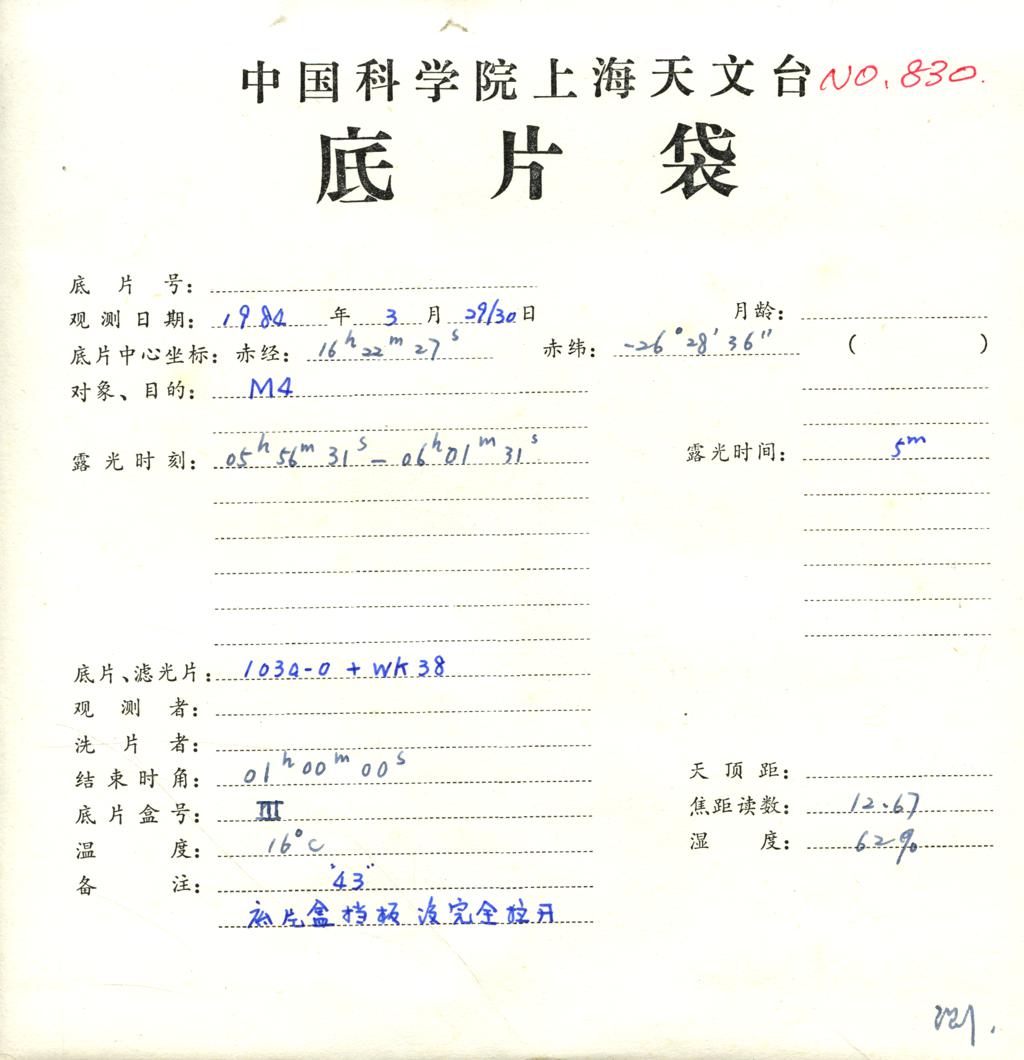 中国科学院上海天文台 NO. 830.
底片袋
底片号：
观测日期： 1984 年 3 月 29/30 日 月龄：
底片中心坐标：赤经： 16h 22m 27s 赤纬： -26° 28′ 36″ ( )
对象、目的： M4
露光时刻： 05h 56m 31s — 06h 01m 31s 露光时间： 5m
底片、滤光片： 103a-0 + WK38
观测者：
洗片者：
结束时角： 01h 00m 00s 天顶距：
底片盒号： III 焦距读数： 12.67
温度： 16°C 湿度： 62%
备注： "43"
底片盒挡板没完全拉开